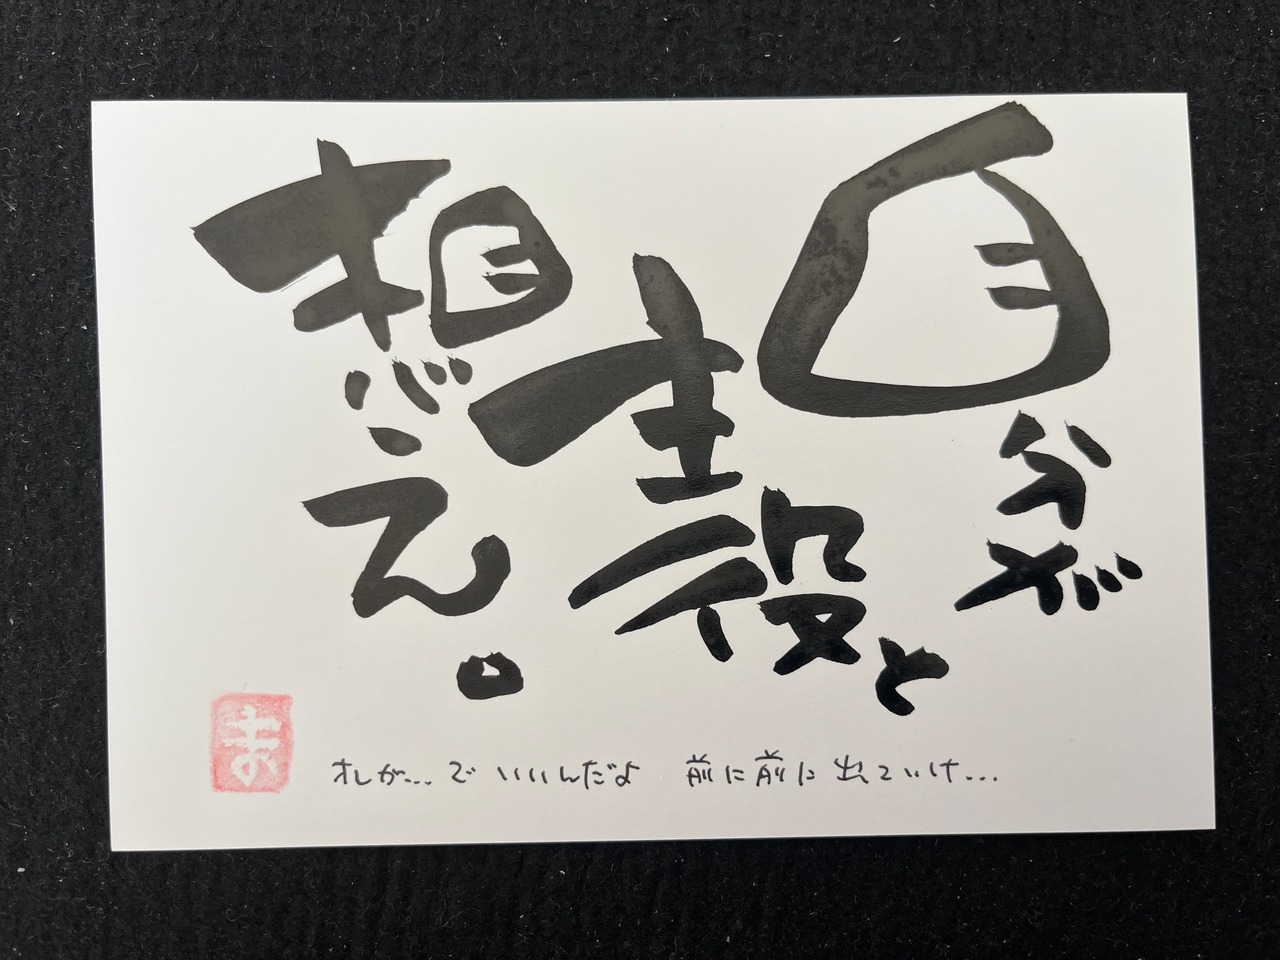 自分が
主役と
想え。
オレが... で いいんだよ 前に前に出ていけ...
ま